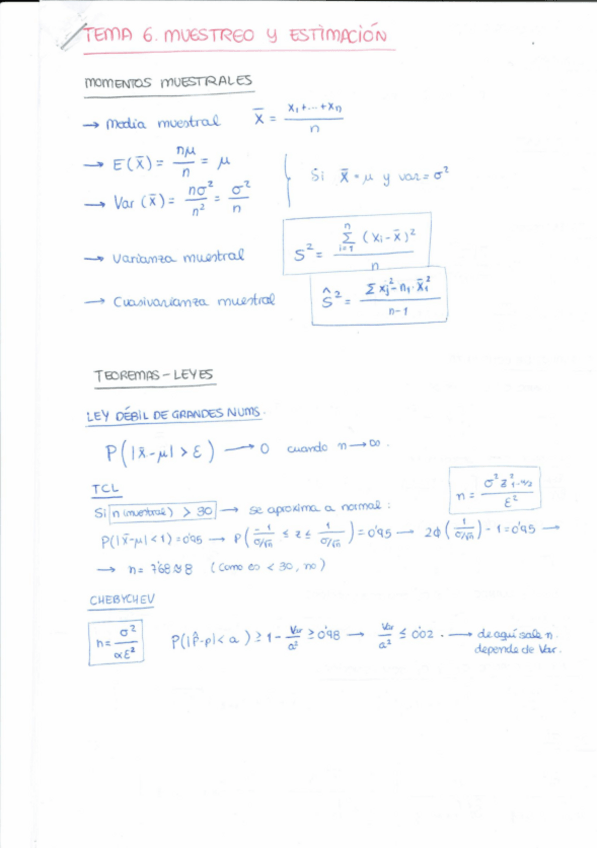 TEMA 6. MUESTREO Y ESTIMACIÓN
MOMENTOS MUESTRALES
→ Media muestral X̄ = (x₁ + ... + xₙ) / n
→ E(X̄) = nμ/n = μ
→ Var(X̄) = nσ²/n² = σ²/n
Si X̄ = μ y var = σ²
→ Varianza muestral S² = Σᵢ₌₁ⁿ (xᵢ - x̄)² / n
→ Cuasivarianza muestral Ŝ² = (Σxⱼ² - n₁·X̄₁²) / (n-1)
TEOREMAS - LEYES
LEY DÉBIL DE GRANDES NUMS.
P(|x̄-μ| > ε) → 0 cuando n → ∞.
TCL
n = σ² z²₁₋α/₂ / ε²
Si n(muestral) > 30 → se aproxima a normal:
P(|x̄-μ| < 1) = 0'95 → P(-1/(σ/√n) ≤ z ≤ 1/(σ/√n)) = 0'95 → 2ϕ(1/(σ/√n)) - 1 = 0'95 →
→ n = 7'68 ≈ 8 (como es < 30, no)
CHEBYCHEV
n = σ²/αε² P(|p̂-p| < a) ≥ 1 - Var/a² ≥ 0'98 → Var/a² ≤ 0'02. → de aquí sale n.
depende de Var.